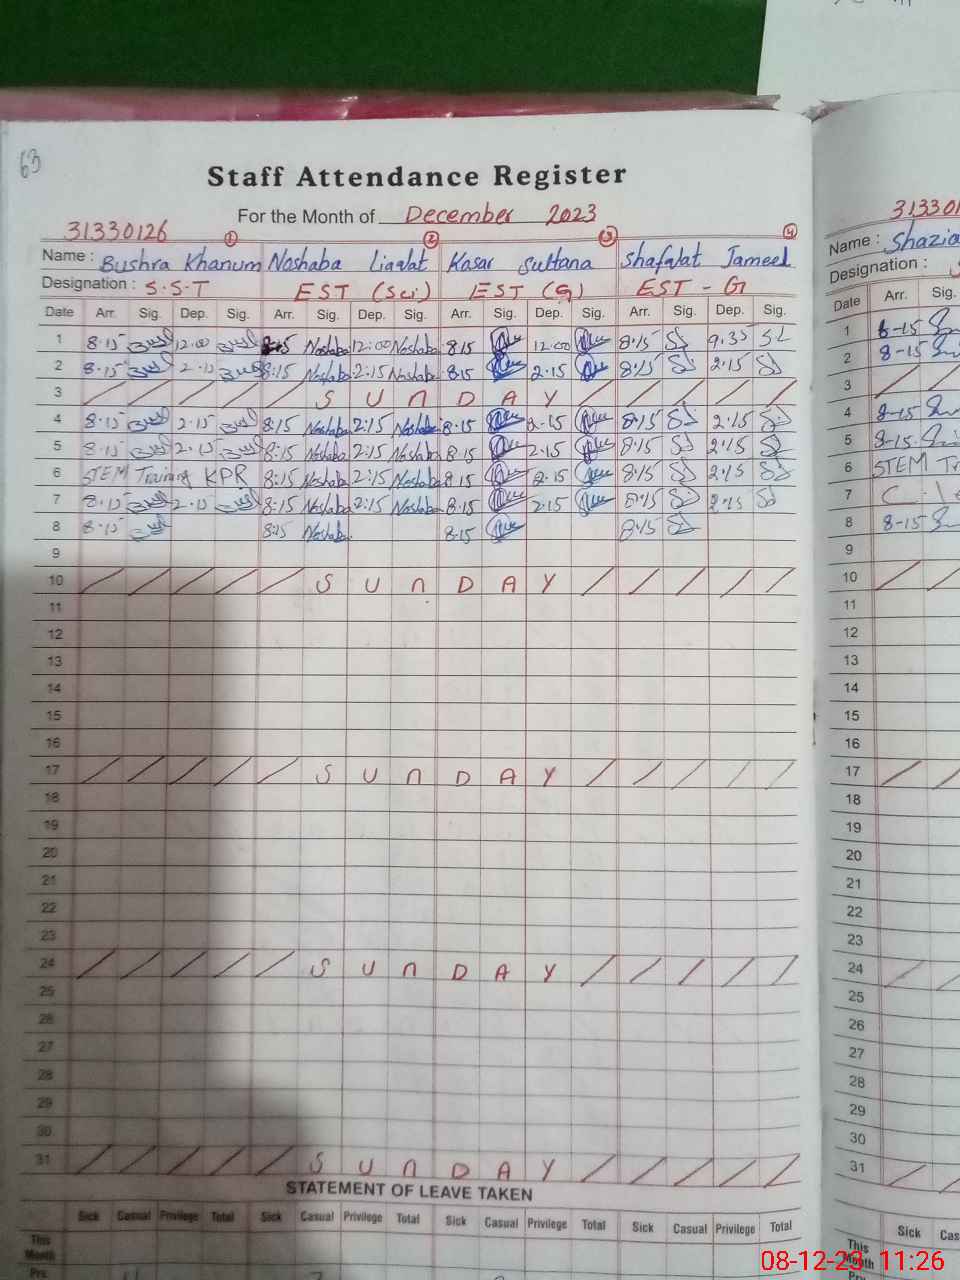 63
Staff Attendance Register
For the Month of December 2023
31330126 1 2 3 4
Name : Bushra Khanum Noshaba Liaqat Kasar Sultana Shafqat Jameel
Designation : S.S.T EST (Sci) EST (G) EST - G
Date Arr. Sig. Dep. Sig. Arr. Sig. Dep. Sig. Arr. Sig. Dep. Sig. Arr. Sig. Dep. Sig.
1 8.15 12.00 8:15 Noshaba 12:00 Noshaba 8.15 12.00 8.15 9.35
2 8.15 2.15 8:15 Noshaba 2:15 Noshaba 8.15 2.15 8.15 2.15
3 / / / / / S U N D A Y / / / / /
4 8.15 2.15 8:15 Noshaba 2:15 Noshaba 8.15 2.15 8.15 2.15
5 8.15 2.15 8:15 Noshaba 2:15 Noshaba 8.15 2.15 8.15 2.15
6 STEM Training KPR 8:15 Noshaba 2:15 Noshaba 8.15 2.15 8.15 2.15
7 8.15 2.15 8:15 Noshaba 2:15 Noshaba 8.15 2.15 8.15 2.15
8 8.15 8:15 Noshaba 8.15 8.15
9
10 / / / / / S U N D A Y / / / / /
11
12
13
14
15
16
17 / / / / / S U N D A Y / / / / /
18
19
20
21
22
23
24 / / / / / S U N D A Y / / / / /
25
26
27
28
29
30
31 / / / / / S U N D A Y / / / / /
STATEMENT OF LEAVE TAKEN
Sick Casual Privilege Total Sick Casual Privilege Total Sick Casual Privilege Total Sick Casual Privilege Total
This Month
Prv.
Name : Shazia
Designation :
Date Arr. Sig.
1 8-15
2 8-15
3 / /
4 8-15
5 8-15
6 STEM
7 C.
8 8-15
9
10 / /
11
12
13
14
15
16
17 / /
18
19
20
21
22
23
24 / /
25
26
27
28
29
30
31 / /
Sick
This Month
08-12-23 11:26